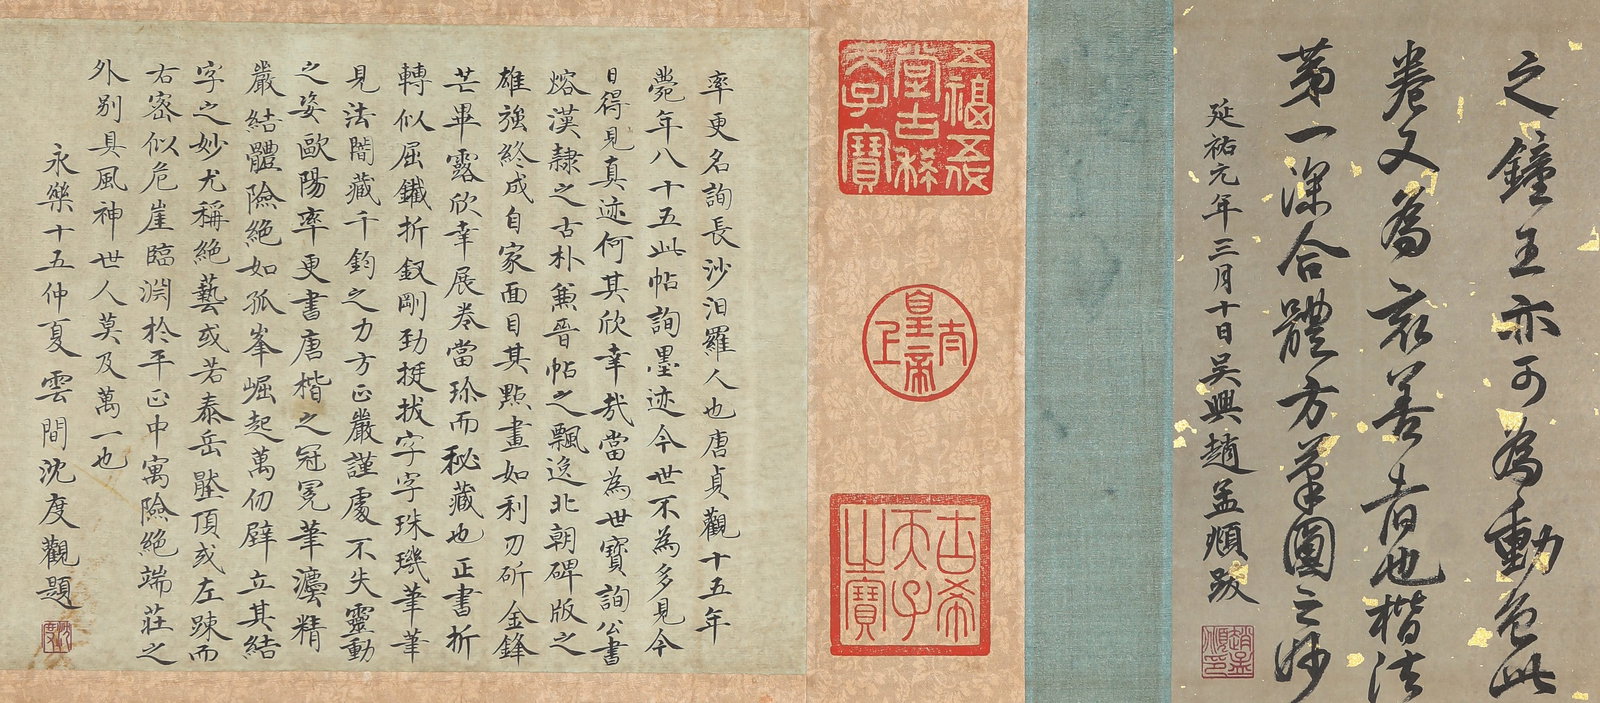 之鐘王亦可為動色此
卷又為最善者也楷法
第一深合體方筆圓之妙
延祐元年三月十日吳興趙孟頫跋
趙孟頫印
五福五代
堂古稀
天子寶
太上皇帝
古希
天子
之寶
率更名詢長沙汨羅人也唐貞觀十五年
薨年八十五此帖詢墨迹今世不為多見今
日得見真迹何其欣幸哉當為世寶詢公書
熔漢隸之古朴兼晉帖之飄逸北朝碑版之
雄強終成自家面目其點畫如利刃斫金鋒
芒畢露欣幸展卷當珍而秘藏也正書折
轉似屈鐵折釵剛勁挺拔字字珠璣筆筆
見法闇藏千鈞之力方正嚴謹處不失靈動
之姿歐陽率更書唐楷之冠冕筆灋精
嚴結體險絕如孤峯崛起萬仞壁立其結
字之妙尤稱絕藝或若泰岳壓頂或左踈而
右密似危崖臨淵於平正中寓險絕端莊之
外別具風神世人莫及萬一也
永樂十五仲夏雲間沈度觀題
沈度